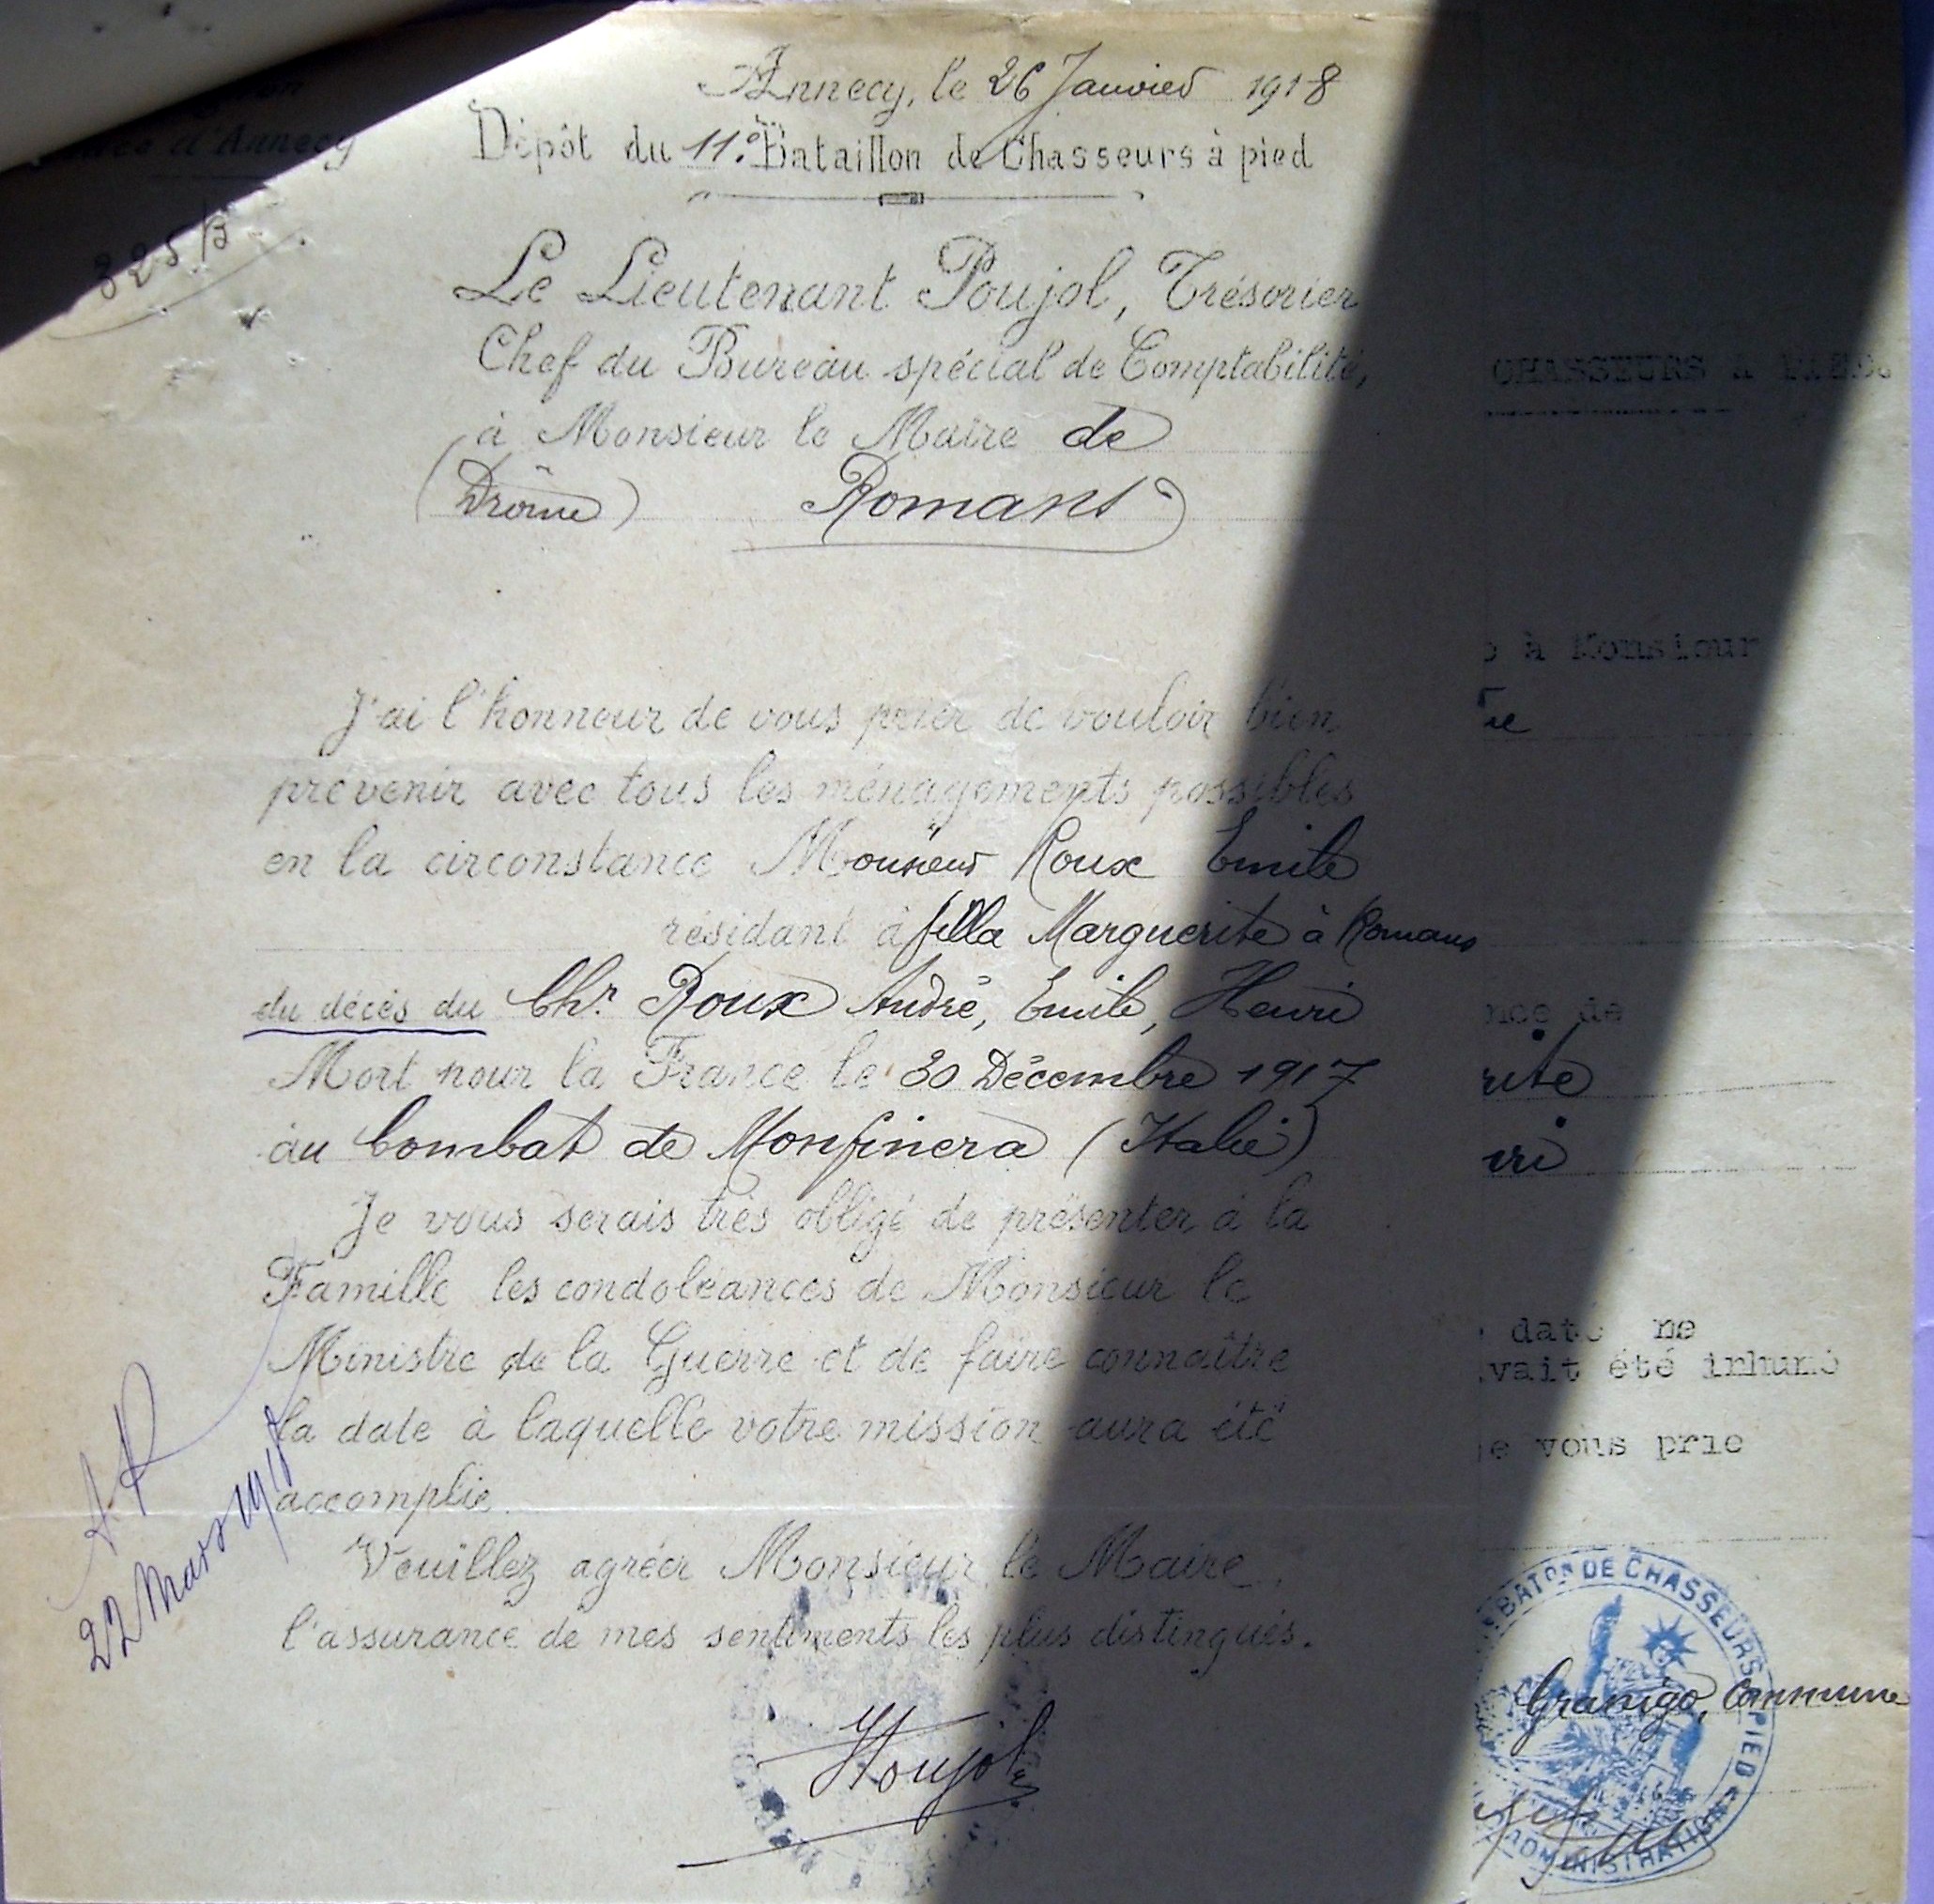 Annecy, le 26 Janvier 1918
Dépôt du 11e Bataillon de Chasseurs à pied
d'Annecy
325/B
Le Lieutenant Poujol, Trésorier
Chef du Bureau spécial de Comptabilité,
à Monsieur le Maire de
(Drôme) Romans
J'ai l'honneur de vous prier de vouloir bien
prévenir avec tous les ménagements possibles
en la circonstance Monsieur Roux Emile
résidant à Villa Marguerite à Romans
du décès du Chr. Roux André, Emile, Henri
Mort pour la France le 30 Décembre 1917
au Combat de Monfinera (Italie)
Je vous serais très obligé de présenter à la
Famille les condoléances de Monsieur le
Ministre de la Guerre et de faire connaître
la date à laquelle votre mission aura été
accomplie.
Veuillez agréer Monsieur le Maire,
l'assurance de mes sentiments les plus distingués.
Poujol
A.R
22 Mars 1918
CHASSEURS A PIED.
à Monsieur
nce de
rite
uri
date ne
vait été inhumé
e vous prie
BATON DE CHASSEURS A PIED
ADMINISTRATION
Granigo, Commune